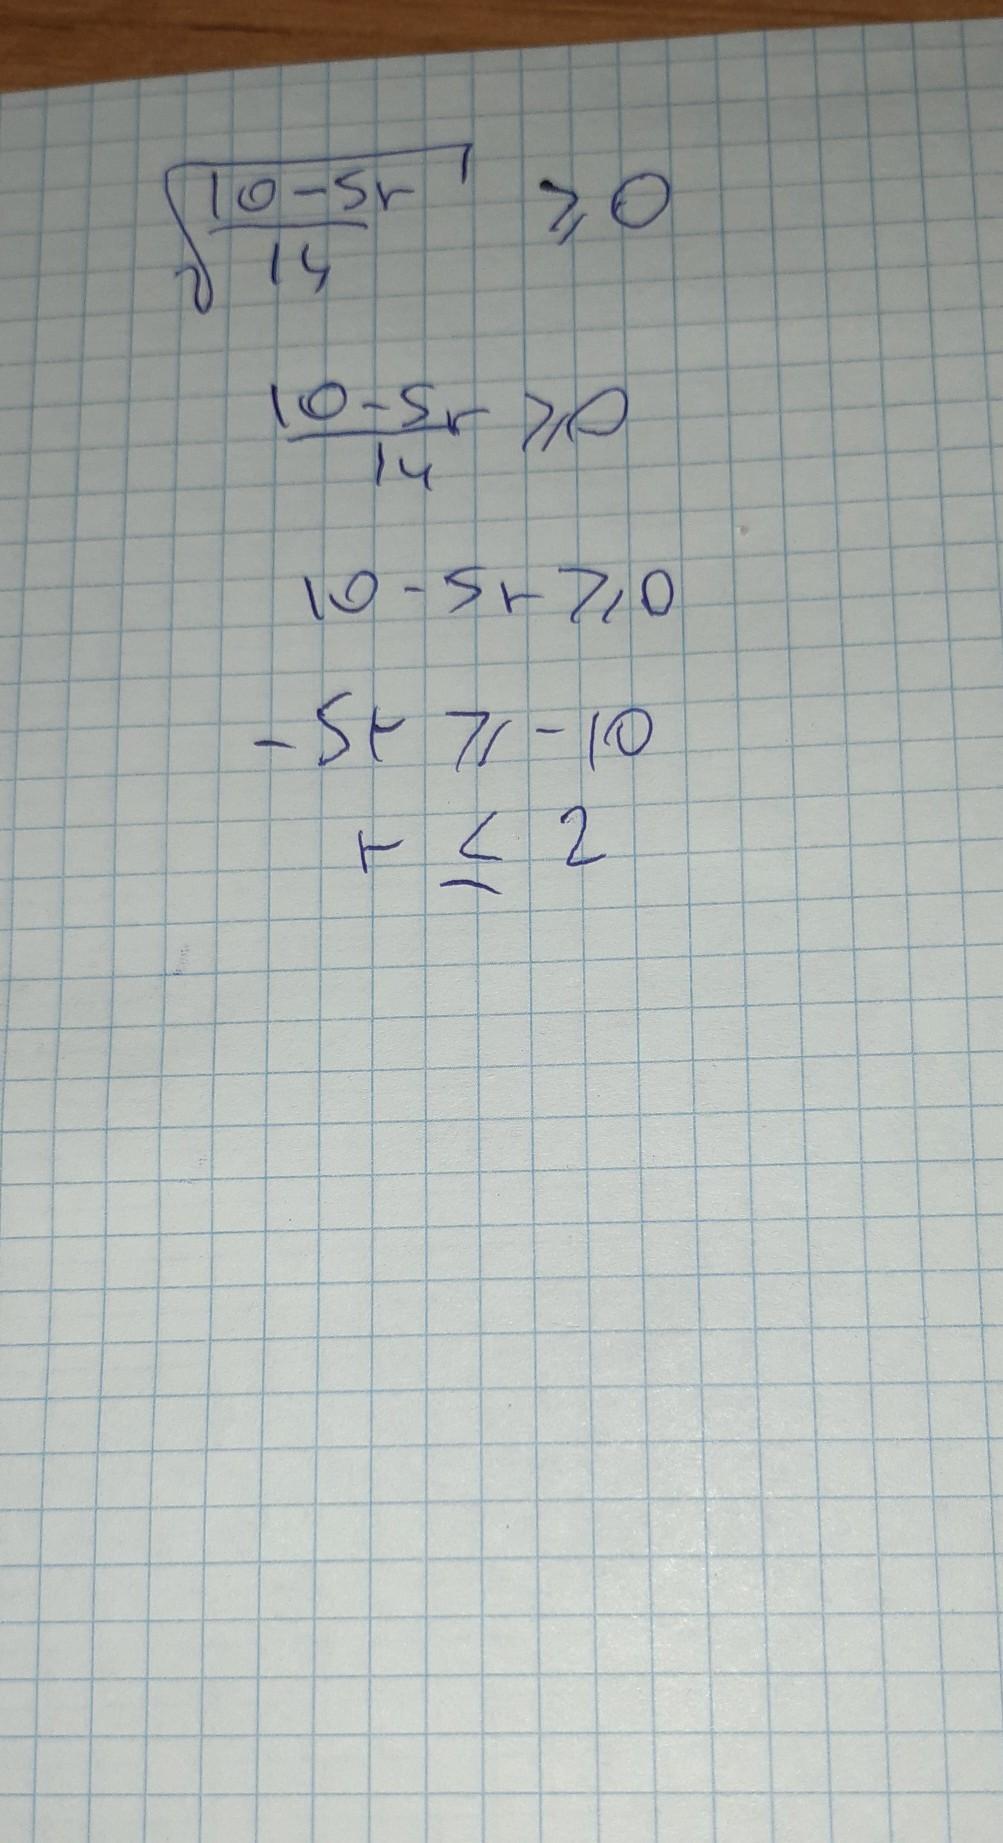 √((10-5r)/14) ⩾ 0
(10-5r)/14 ⩾ 0
10 - 5r ⩾ 0
-5r ⩾ -10
r ≤ 2